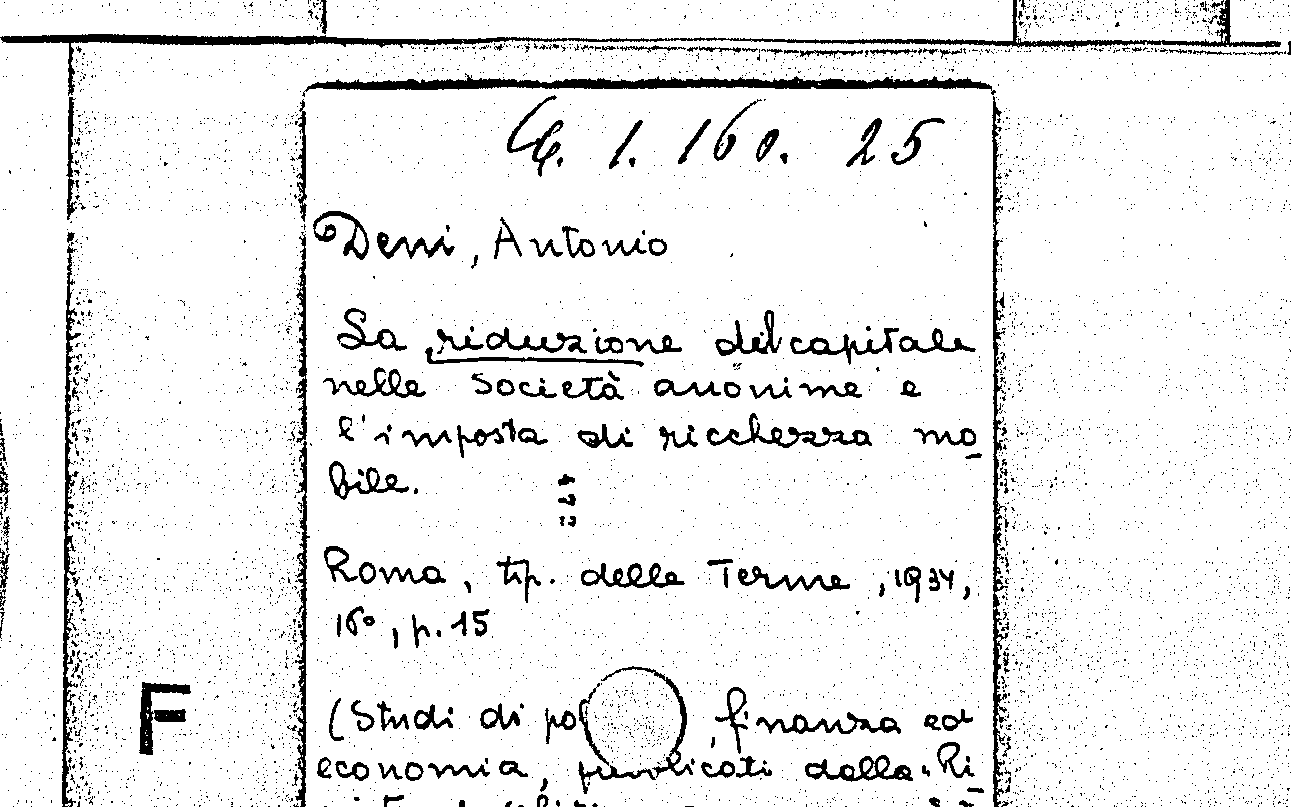 1. 160. 25
Deni, Antonio
La riduzione del capitale
nelle società anonime e
l'imposta di ricchezza mo
bile.
Roma, tip. delle Terme, 1934,
16°, p. 15
F
(Studi di pol , finanza ed
economia, pubblicati dalla Ri